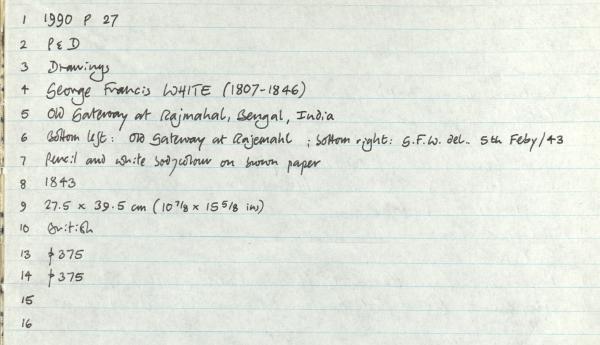 1 1990 P 27
2 P & D
3 Drawings
4 George Francis WHITE (1807-1846)
5 Old Gateway at Rajmahal, Bengal, India
6 Bottom left: Old Gateway at Rajemahl ; bottom right: G.F.W. del. 5th Feby/43
7 Pencil and white bodycolour on brown paper
8 1843
9 27.5 x 39.5 cm (10 7/8 x 15 5/8 in)
10 British
13 £375
14 £375
15
16